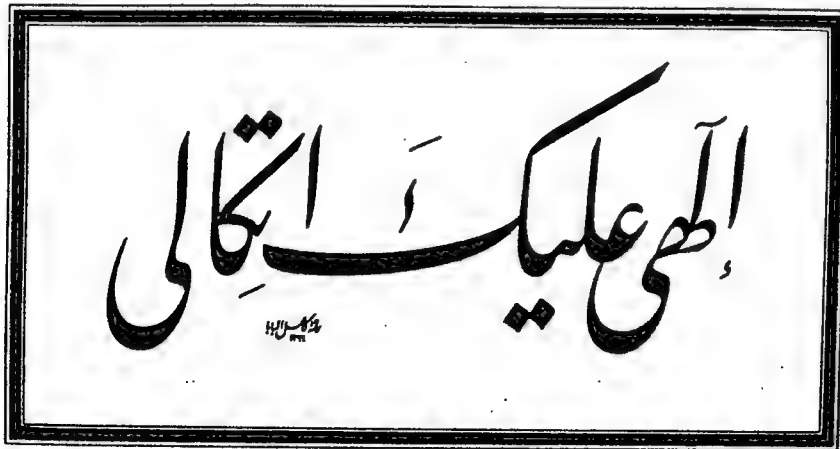 إلٓهي عليكَ اتِكالي